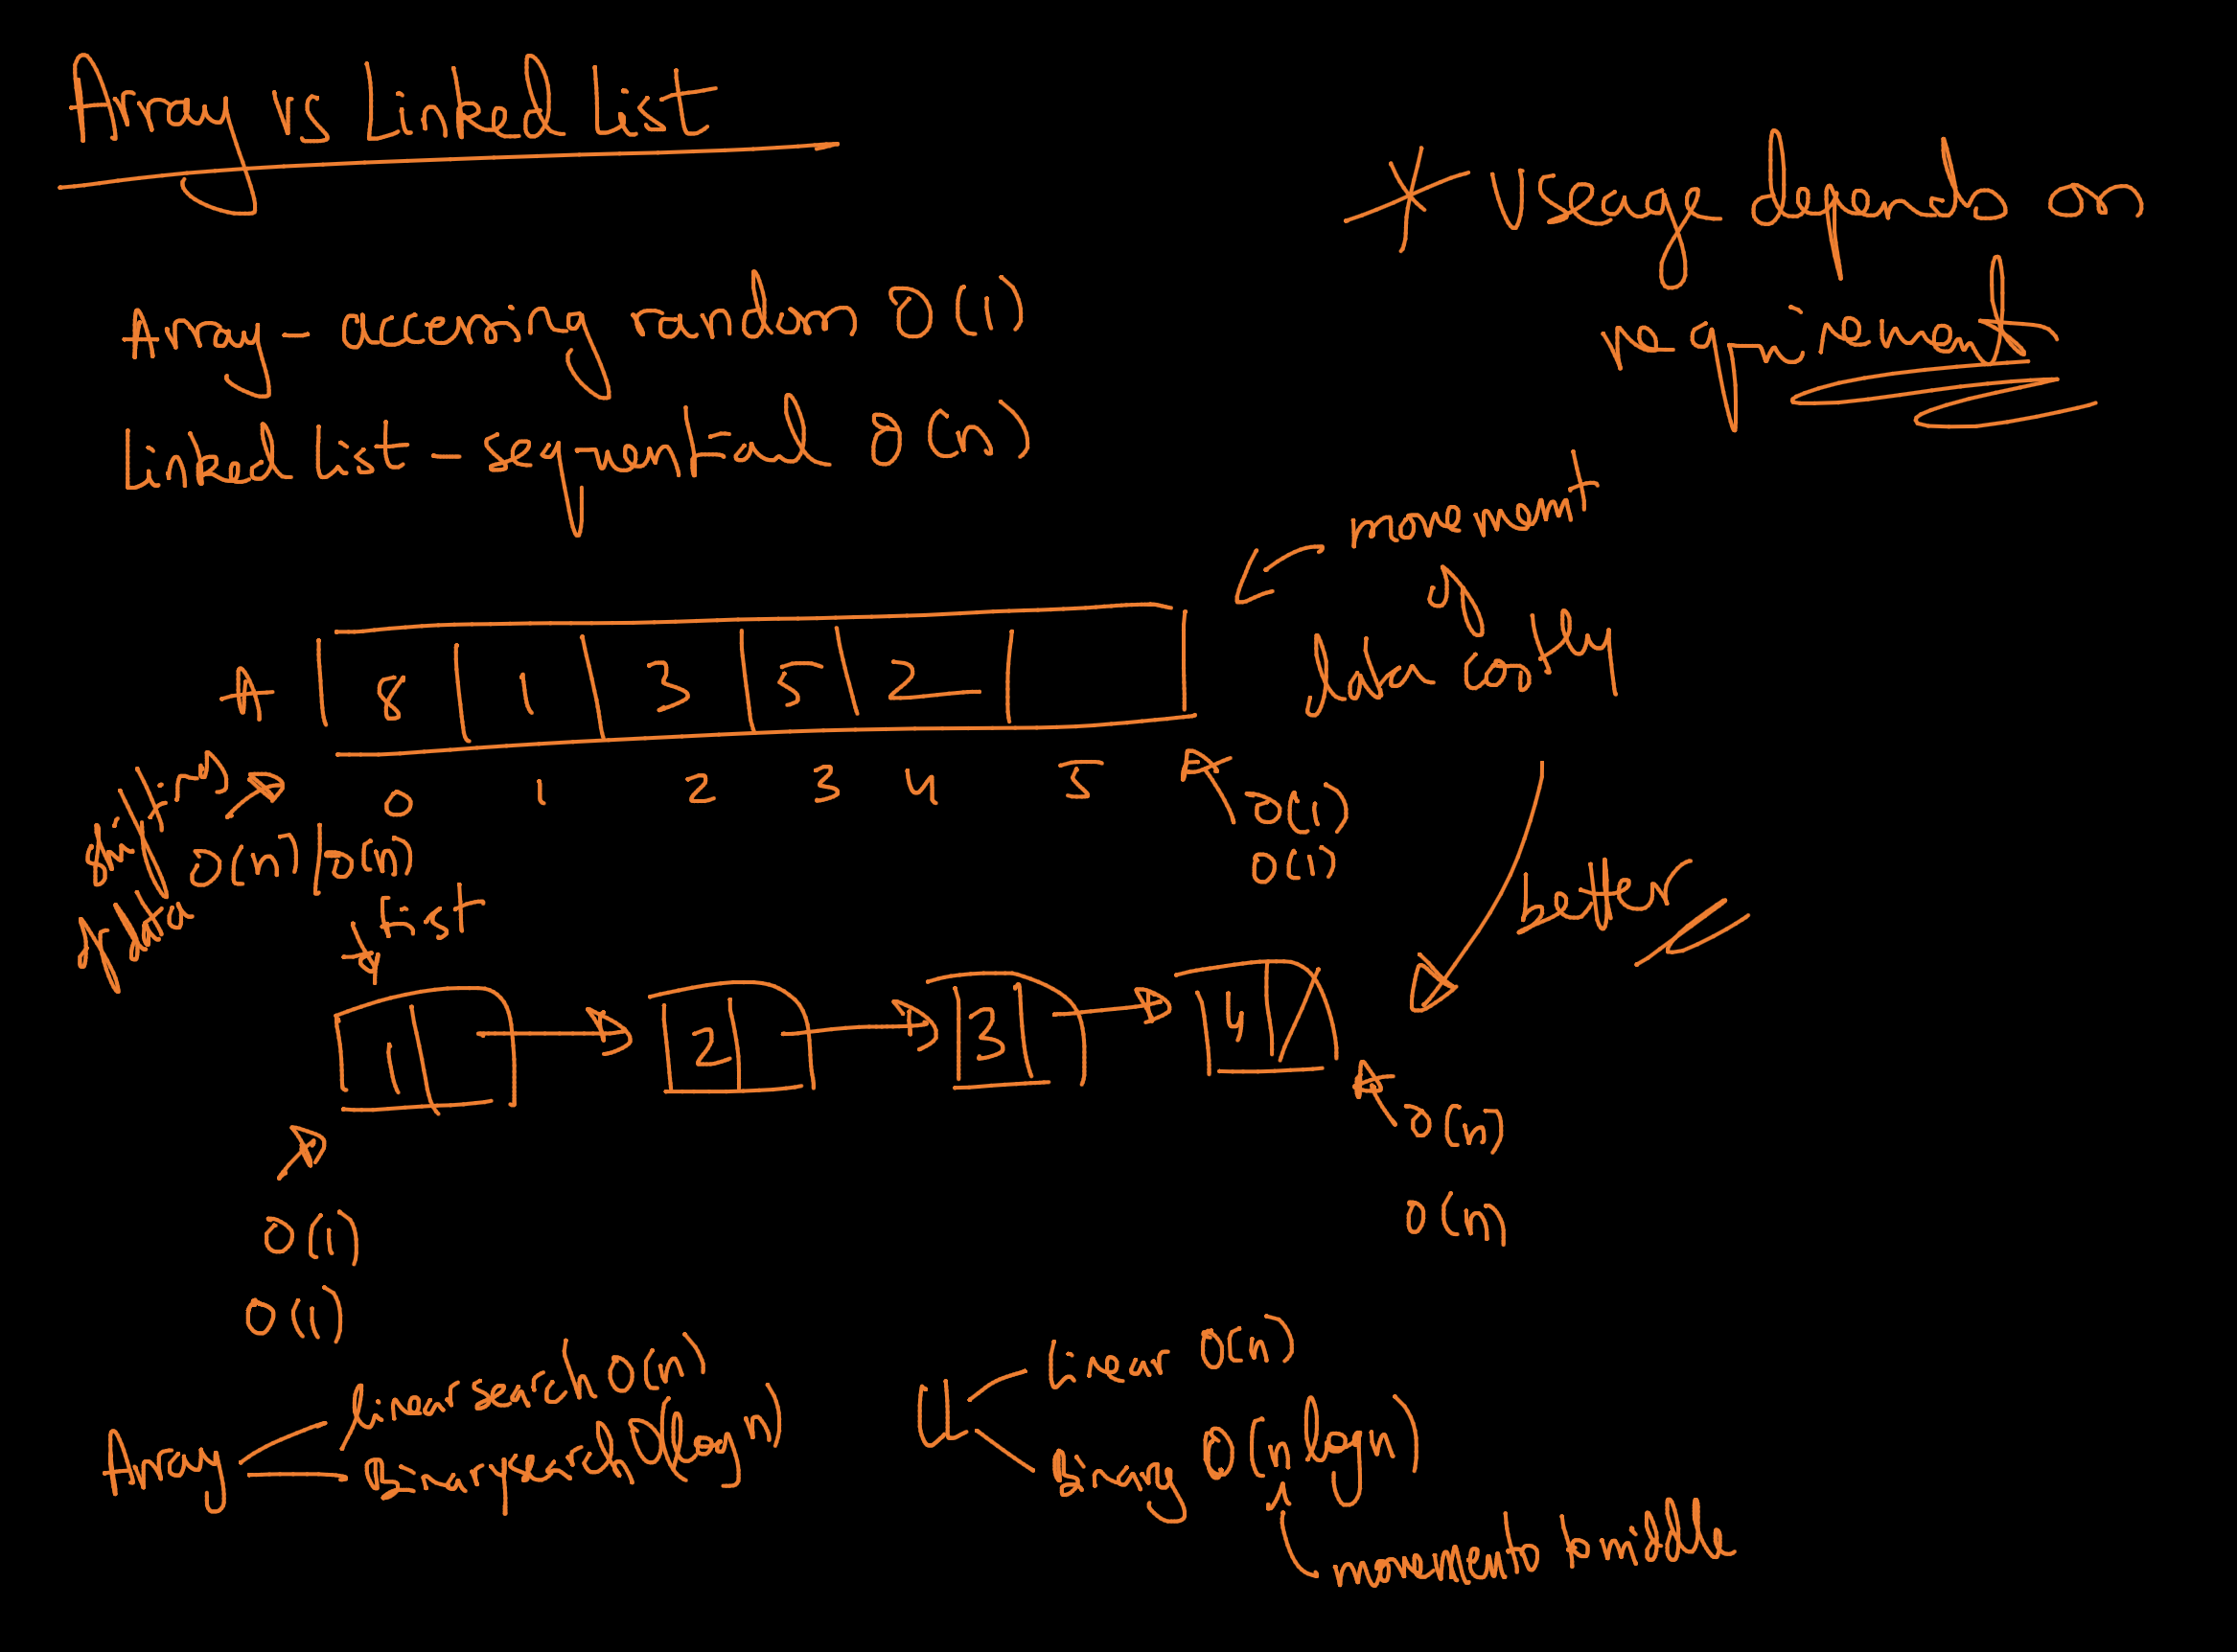 Array vs Linked List
* Useage depends on
requirement
Array - accessing random O(1)
Linked List - sequential O(n)
movement
of
data costly
A 8 1 3 5 2
0 1 2 3 4 5
shifting
of data
O(n) | O(n)
O(1)
O(1)
better
first
1 2 3 4
O(n)
O(n)
O(1)
O(1)
Array
linear search O(n)
Binary search O(log n)
LL
linear O(n)
Binary O(n log n)
movement to middle